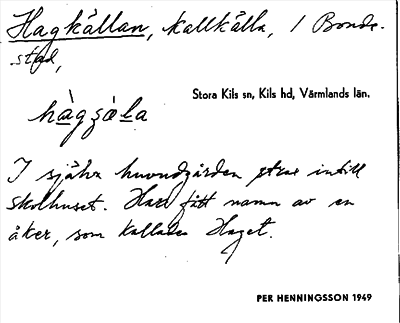 Hagkällan, kallkälla, i Bonde-
stad,
Stora Kils sn, Kils hd, Värmlands län.
I själva huvudgården strax intill
skolhuset. Har fått namn av en
åker, som kallades Haget.
PER HENNINGSSON 1949